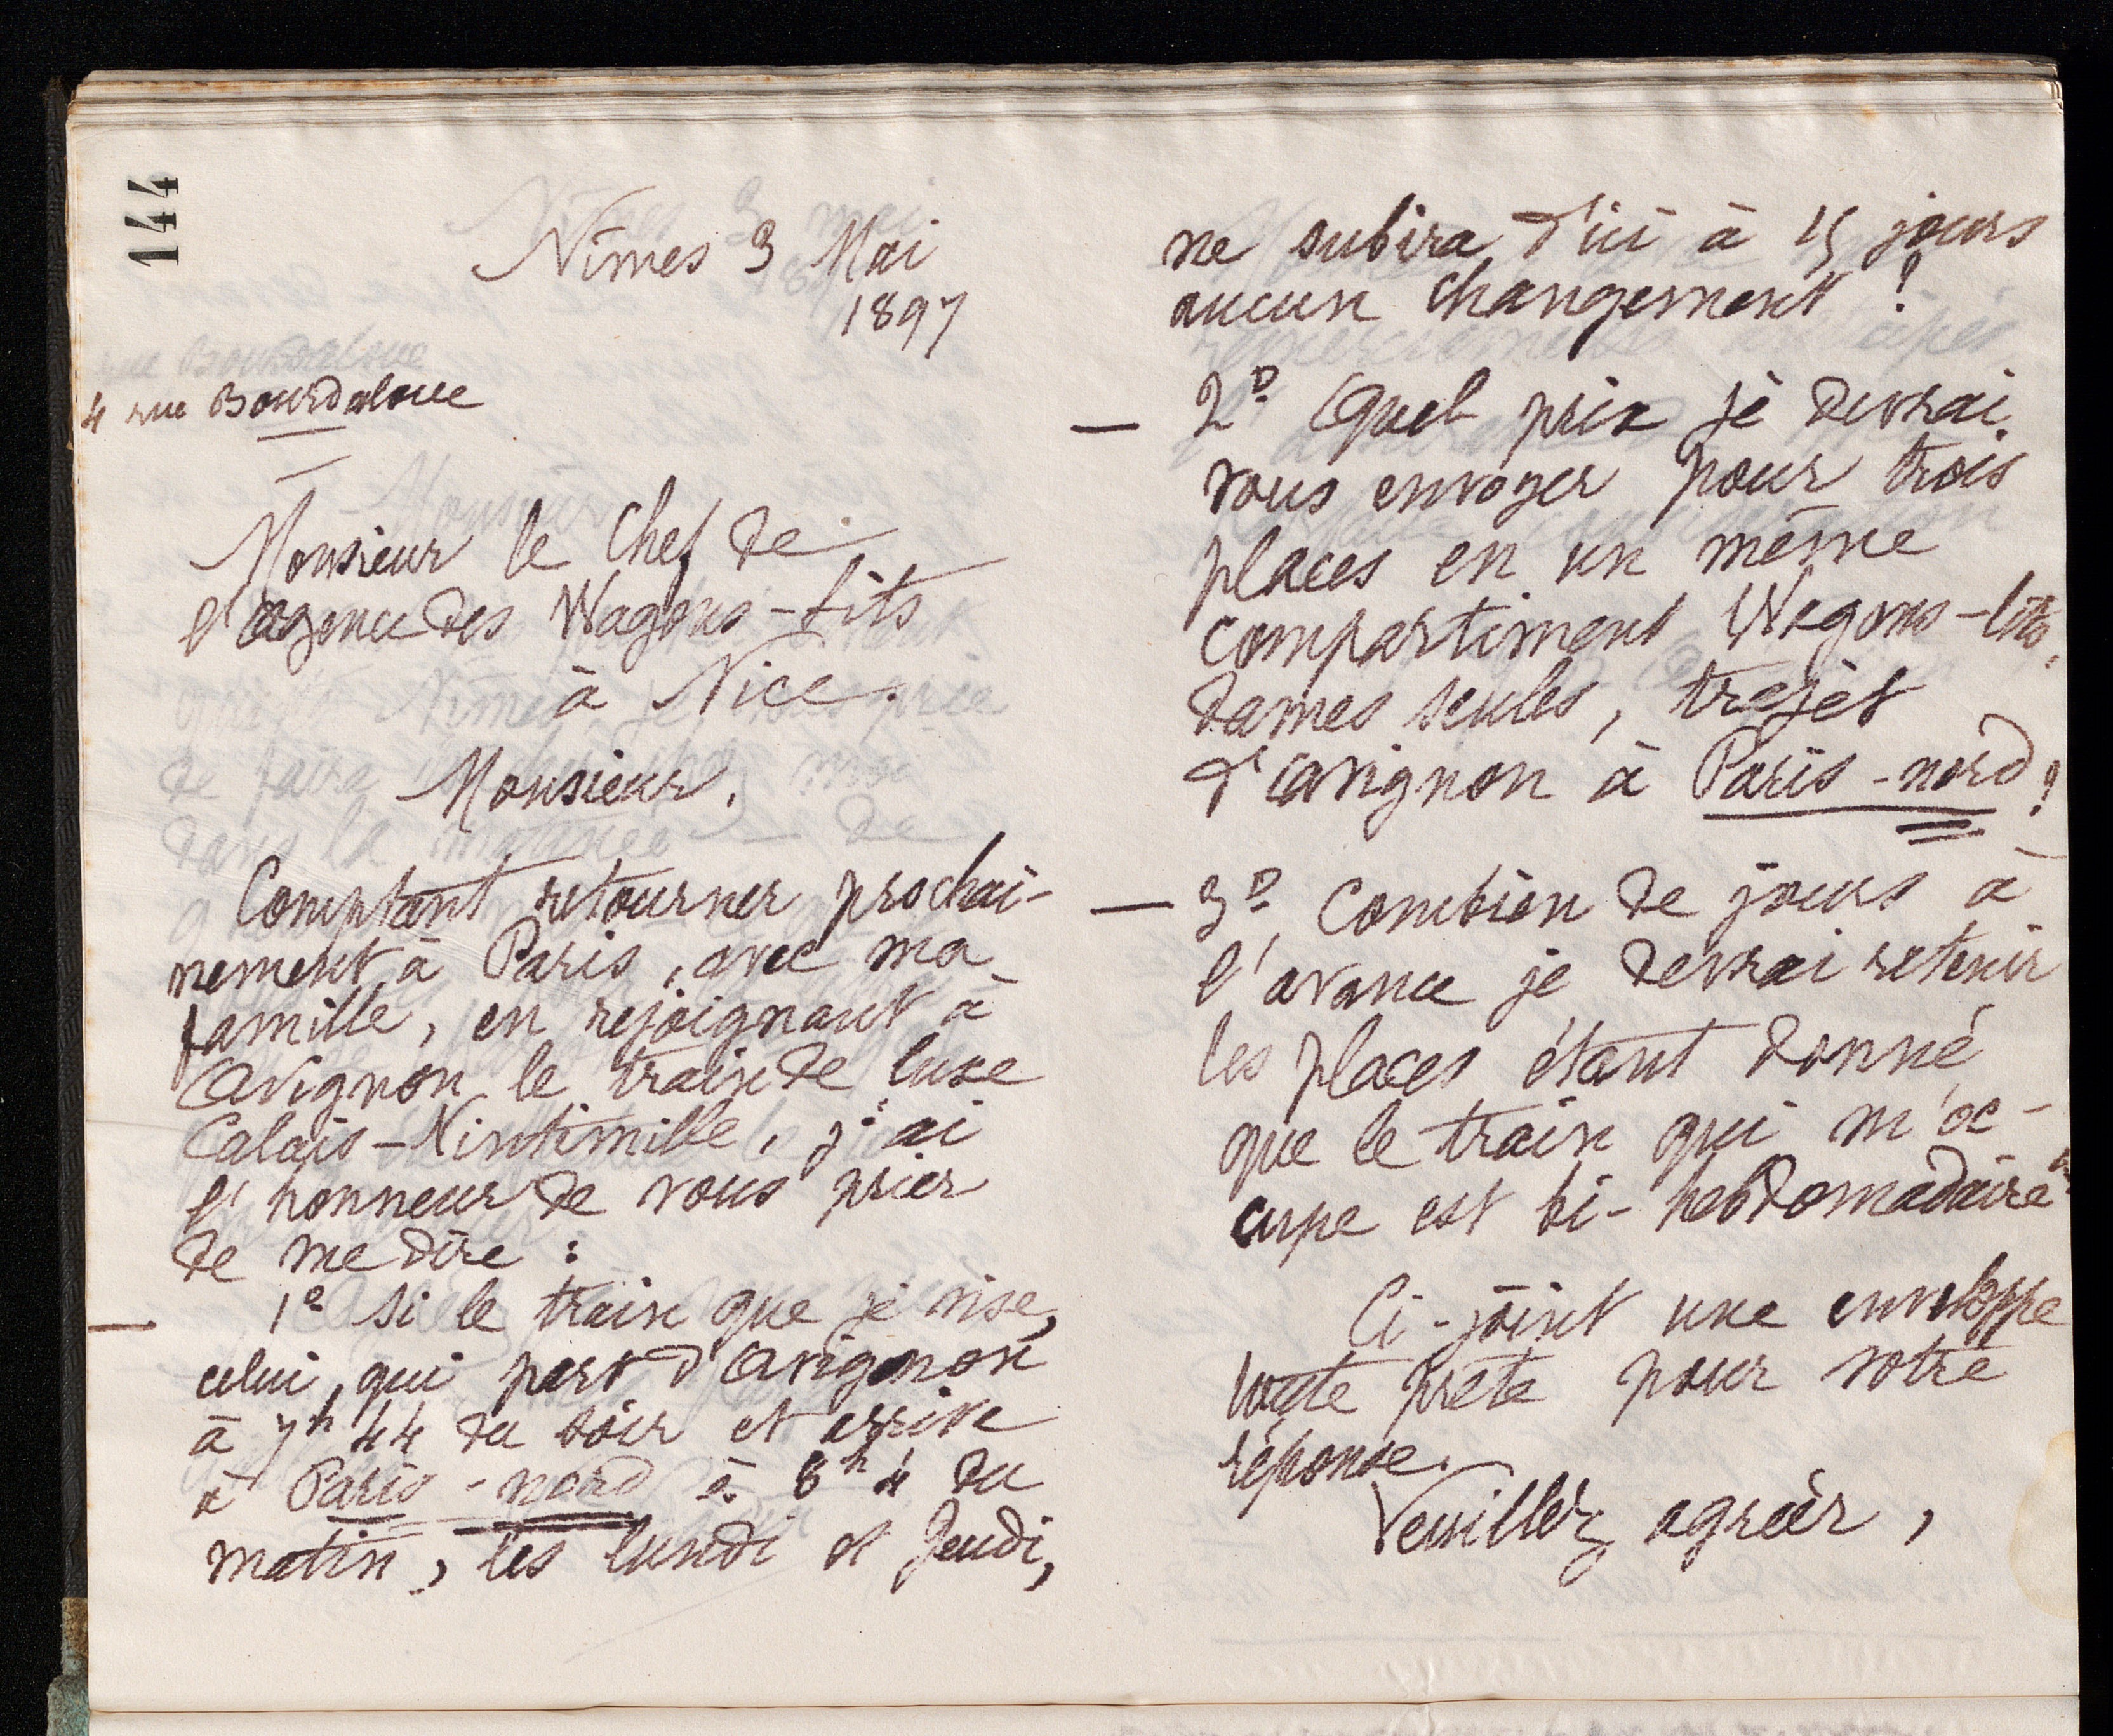 144
Nîmes 3 Mai
1897
4 rue Bourdaloue
Monsieur le Chef de
l'agence des Wagons-Lits
à Nice.
Monsieur,
Comptant retourner prochai-
nement à Paris, avec ma
famille, en rejoignant à
Avignon le train de luxe
Calais-Vintimille, j'ai
l'honneur de vous prier
de me dire :
— 1º si le train que je vise,
celui, qui part d'Avignon
à 7h 44 du soir et arrive
à Paris-nord à 8h 4 du
matin, les lundi et Jeudi,
ne subira d'ici à 15 jours
aucun changement ?
— 2º Quel prix je devrai
vous envoyer pour trois
places en un même
compartiment Wagons-lits,
dames seules, trajet
d'Avignon à Paris-nord ?
— 3º Combien de jours à
l'avance je devrai retenir
les places étant donné
que le train qui m'oc-
cupe est bi-hebdomadaire
Ci-joint une enveloppe
toute prête pour votre
réponse.
Veuillez agréer,